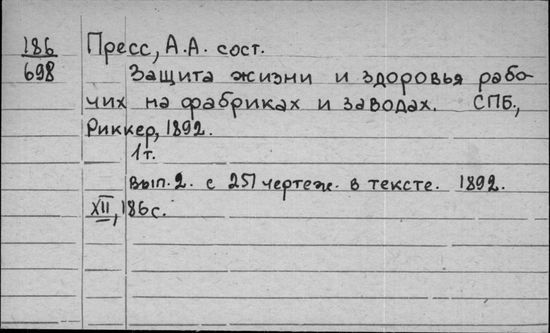 186
698
Пресс, А.А. сост.
Защита жизни и здоровья рабо-
чих на фабриках и заводах. СПБ.,
Риккер, 1892.
1т.
вып. 2. с 251 чертеж. в тексте. 1892.
XII, 186 с.